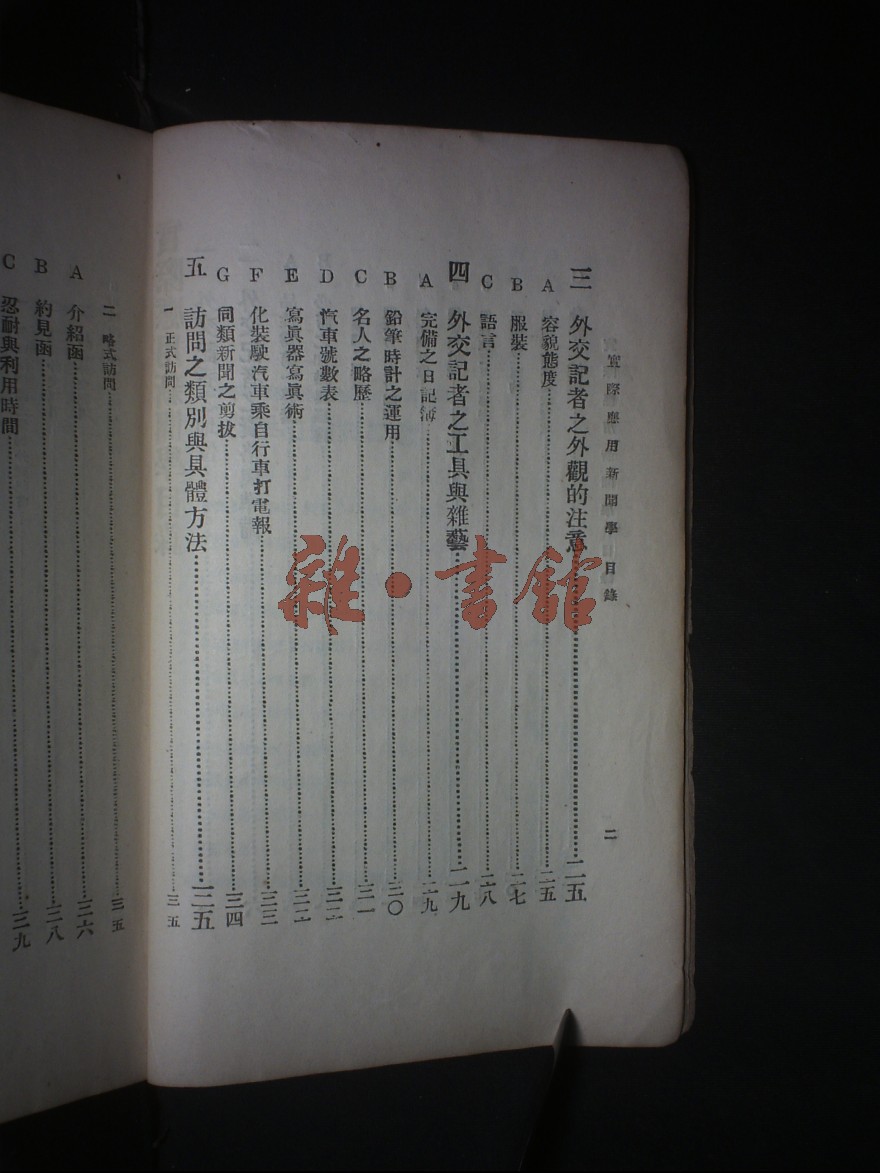 實際應用新聞學 目錄 二
三 外交記者之外觀的注意 二五
A 容貌態度 二五
B 服裝 二七
C 語言 二八
四 外交記者之工具與雜藝 二九
A 完備之日記簿 二九
B 鉛筆時計之運用 三〇
C 名人之略歷 三一
D 汽車號數表 三二
E 寫眞器寫眞術 三二
F 化裝駛汽車乘自行車打電報 三三
G 同類新聞之剪拔 三四
五 訪問之類別與具體方法 三五
一 正式訪問 三五
二 略式訪問 三五
A 介紹函 三六
B 約見函 三八
C 忍耐與利用時間 三九
雜·書館